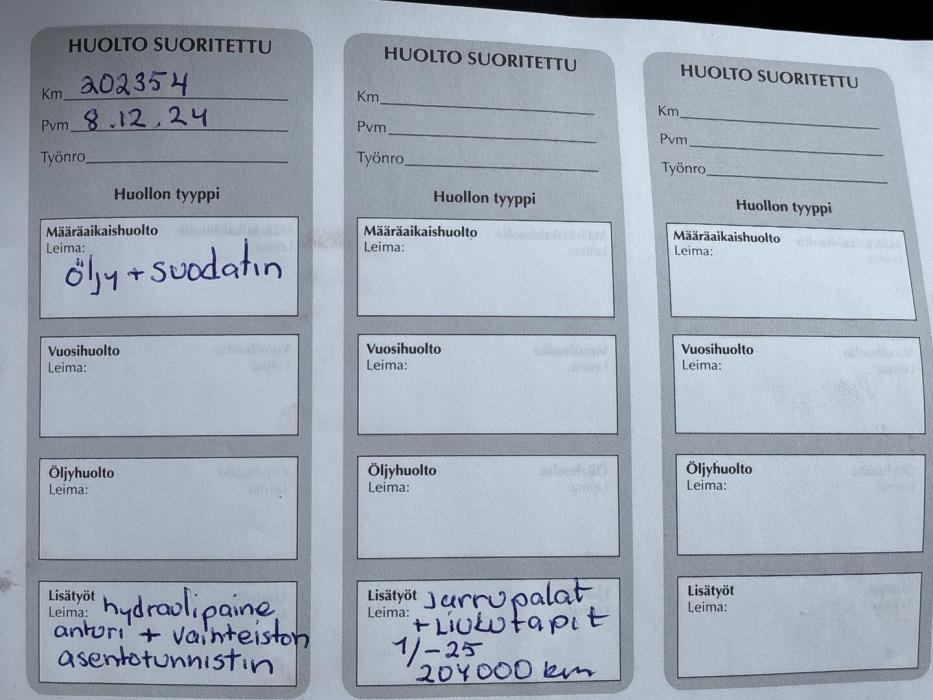 HUOLTO SUORITETTU
Km 202354
Pvm 8.12.24
Työnro
Huollon tyyppi
Määräaikaishuolto
Leima:
öljy + suodatin
Vuosihuolto
Leima:
Öljyhuolto
Leima:
Lisätyöt
Leima: hydraulipaine
anturi + vaihteiston
asentotunnistin
HUOLTO SUORITETTU
Km
Pvm
Työnro
Huollon tyyppi
Määräaikaishuolto
Leima:
Vuosihuolto
Leima:
Öljyhuolto
Leima:
Lisätyöt Jarrupalat
Leima: + Liukutapit
1/-25
204000 km
HUOLTO SUORITETTU
Km
Pvm
Työnro
Huollon tyyppi
Määräaikaishuolto
Leima:
Vuosihuolto
Leima:
Öljyhuolto
Leima:
Lisätyöt
Leima: